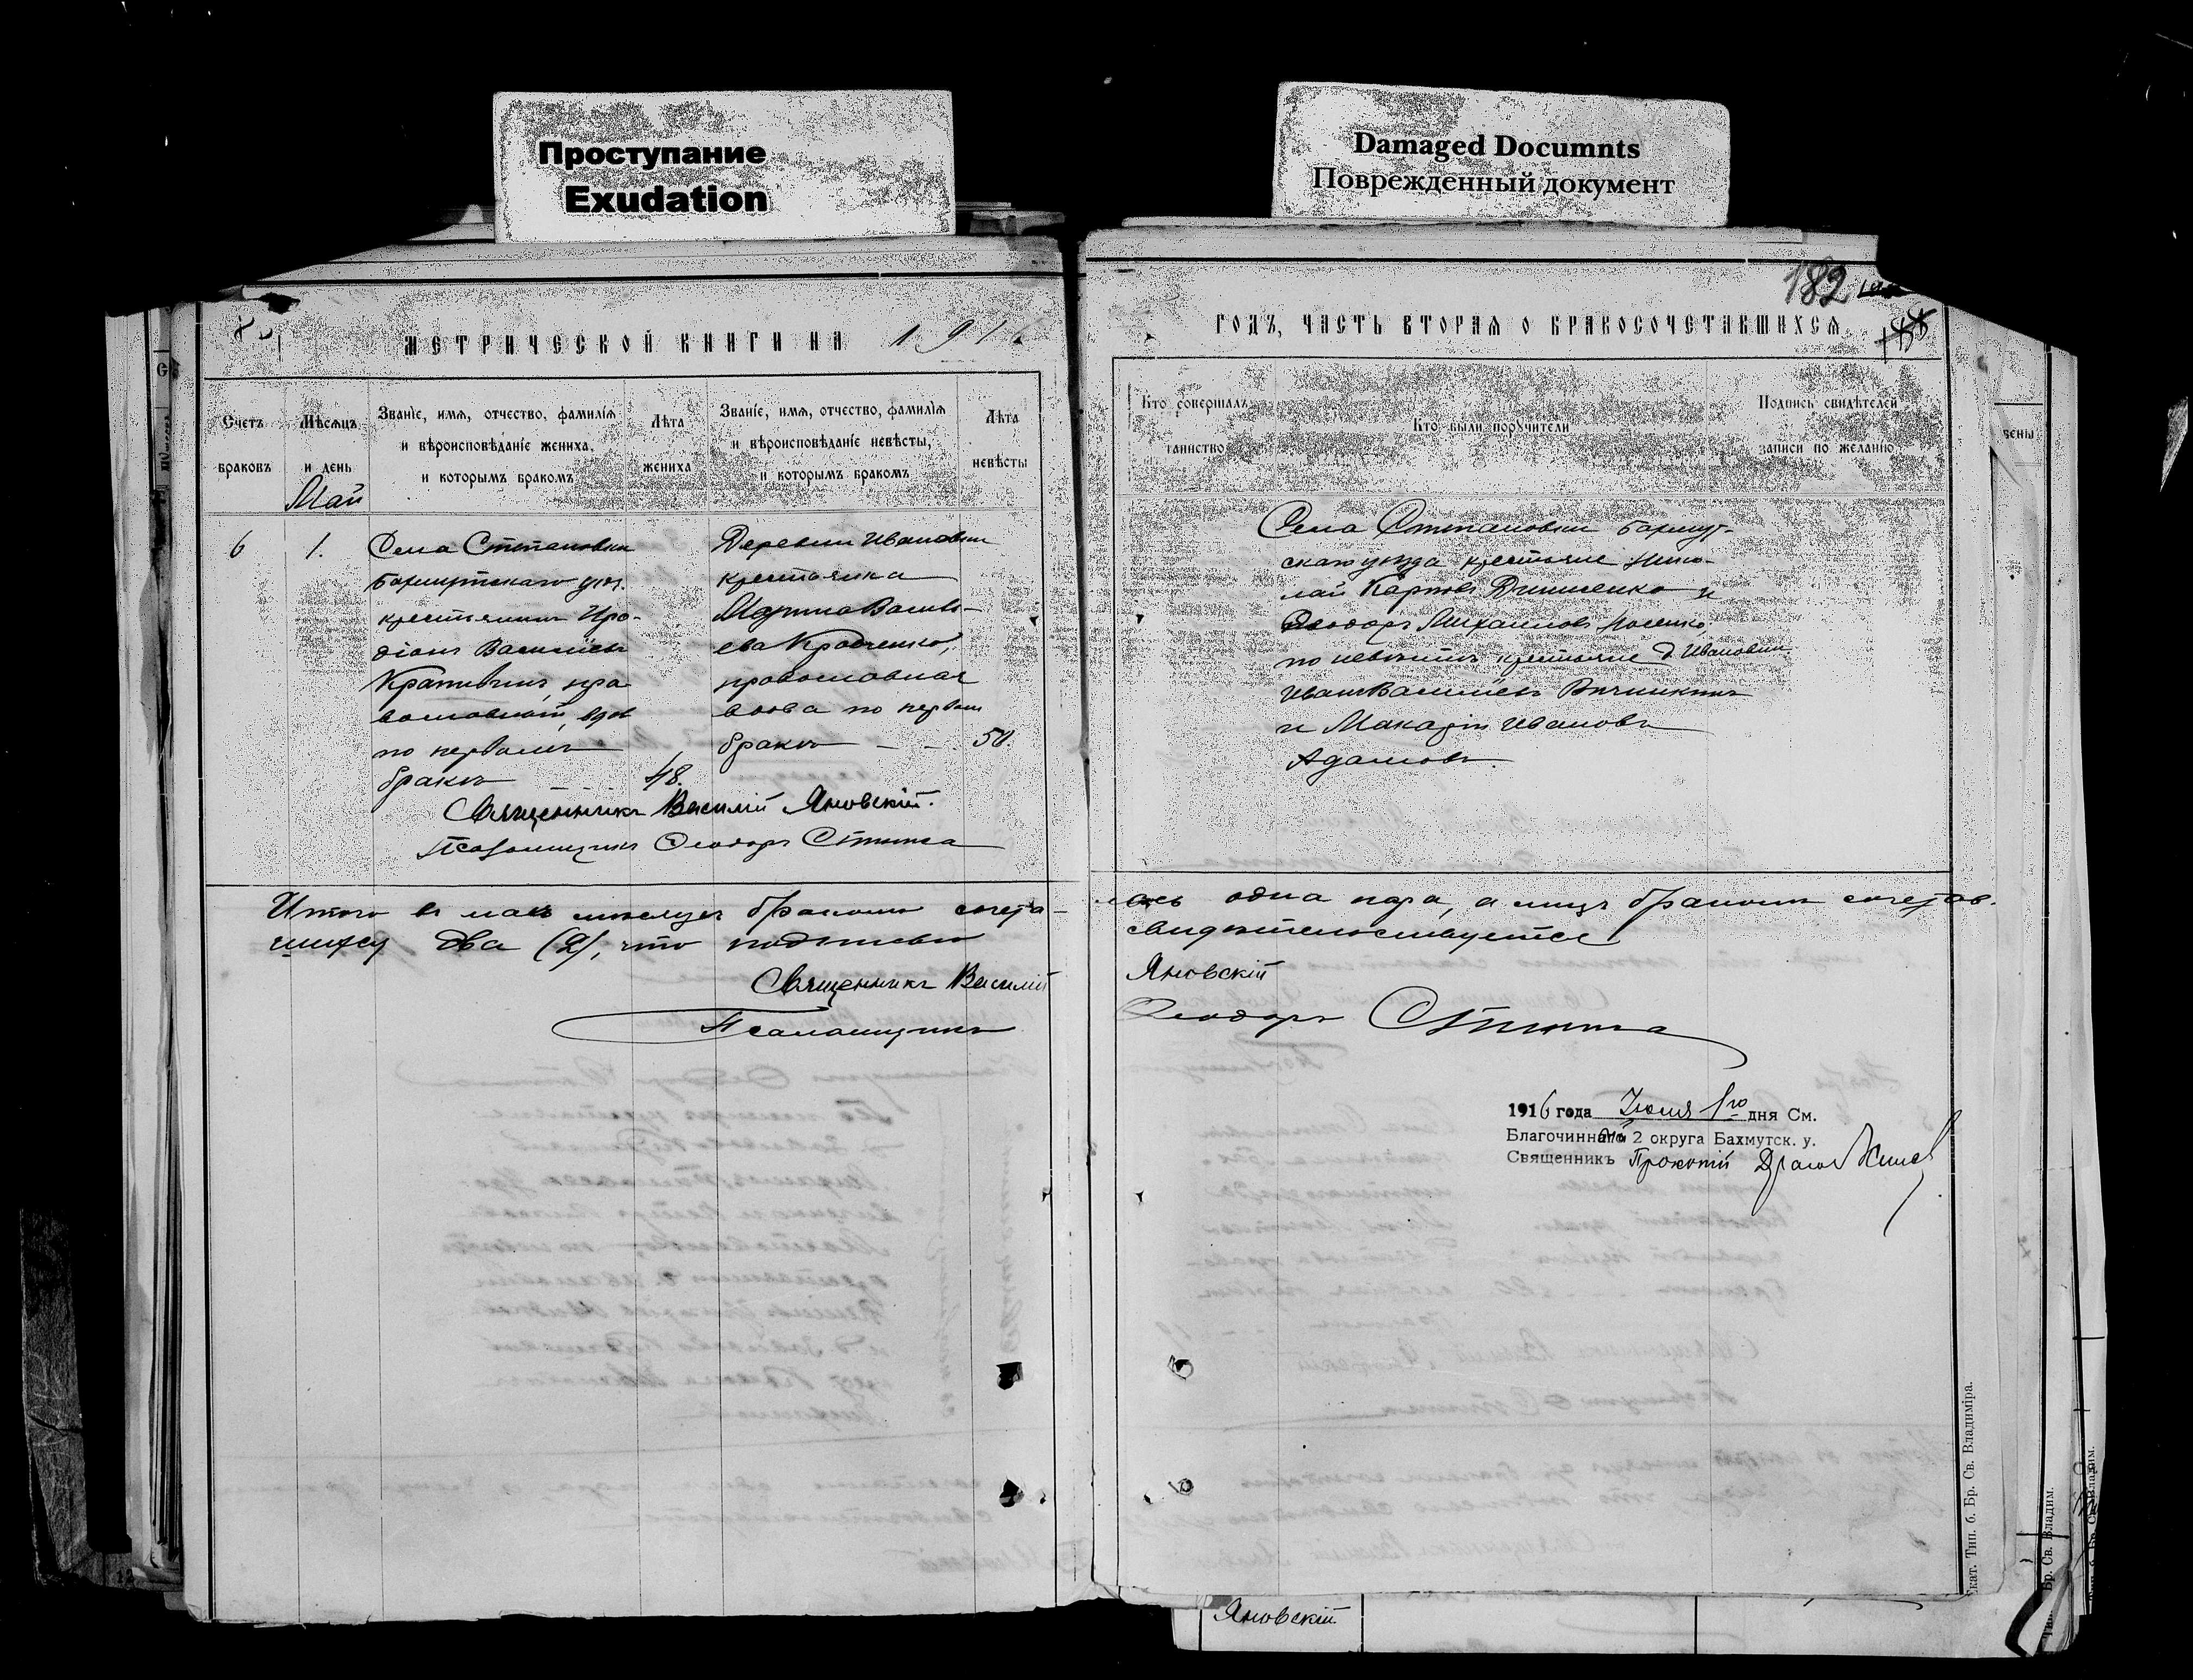 Проступание
Exudation
Damaged Documnts
Поврежденный документ
182
МЕТРИЧЕСКОЙ КНИГИ НА 1916
ГОДЪ, ЧАСТЬ ВТОРАЯ О БРАКОСОЧЕТАВШИХСЯ
Счетъ браковъ
Мѣсяцъ и день
Званіе, имя, отчество, фамилія и вѣроисповѣданіе жениха, и которымъ бракомъ
Лѣта жениха
Званіе, имя, отчество, фамилія и вѣроисповѣданіе невѣсты, и которымъ бракомъ
Лѣта невѣсты
Кто совершалъ таинство
Кто были поручители
Подпись свидѣтелей записи по желанію
Май
6
1.
Села Степановки
Бахмутскаго уѣз.
крестьянинъ Иро-
діонъ Васильевъ
Крапивинъ, пра-
вославный, вдов
по первомъ
бракѣ
48.
Деревни Ивановки
крестьянка
Марина Василь-
ева Кравченко,
православная
вдова по первом
бракѣ
50.
Села Степановки Бахмут-
скаго уѣзда крестьяне Нико-
лай Карповъ Дышленко и
Ѳеодоръ Михаиловъ Носенко,
по невѣстѣ крестьяне д. Ивановки
Иванъ Васильевъ
и Макарій Ивановъ
Адамовъ.
Священникъ Василій Яновскій.
Псаломщикъ Ѳеодоръ
Итого в маѣ мѣсяцѣ бракомъ сочета-
лась одна пара, а лицъ бракомъ сочетав-
шихся два (2), что подписью
свидѣтельствуется
Священникъ Василій
Яновскій
Псаломщикъ
Ѳеодоръ
1916 года Іюля 1го дня См.
Благочинный 2 округа Бахмутск. у.
Священникъ Прокопій
кат. Тип. б. Бр. Св. Владиміра.
Бр. Св. Владим.
Яновскій